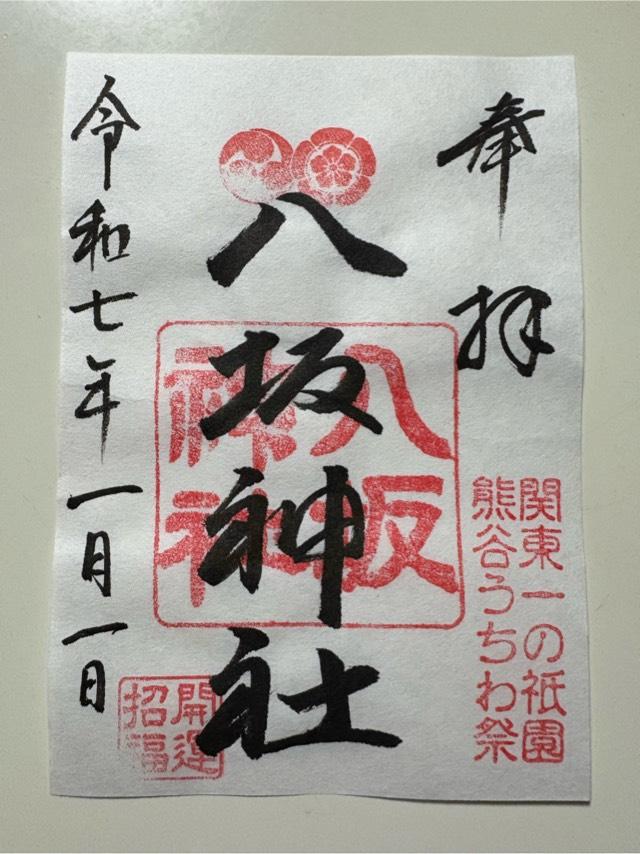 奉拝
関東一の祇園
熊谷うちわ祭
八坂神社
八坂
神社
令和七年一月一日
開運
招福